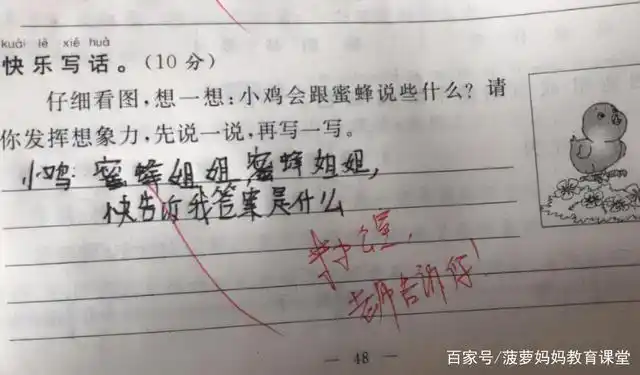 kuài lè xiě huà
快乐写话。(10分)
仔细看图,想一想:小鸡会跟蜜蜂说些什么?请
你发挥想象力,先说一说,再写一写。
小鸡:蜜蜂姐姐蜜蜂姐姐,
快告诉我答案是什么
来办公室,
老师告诉你!
— 48 —
百家号/菠萝妈妈教育课堂